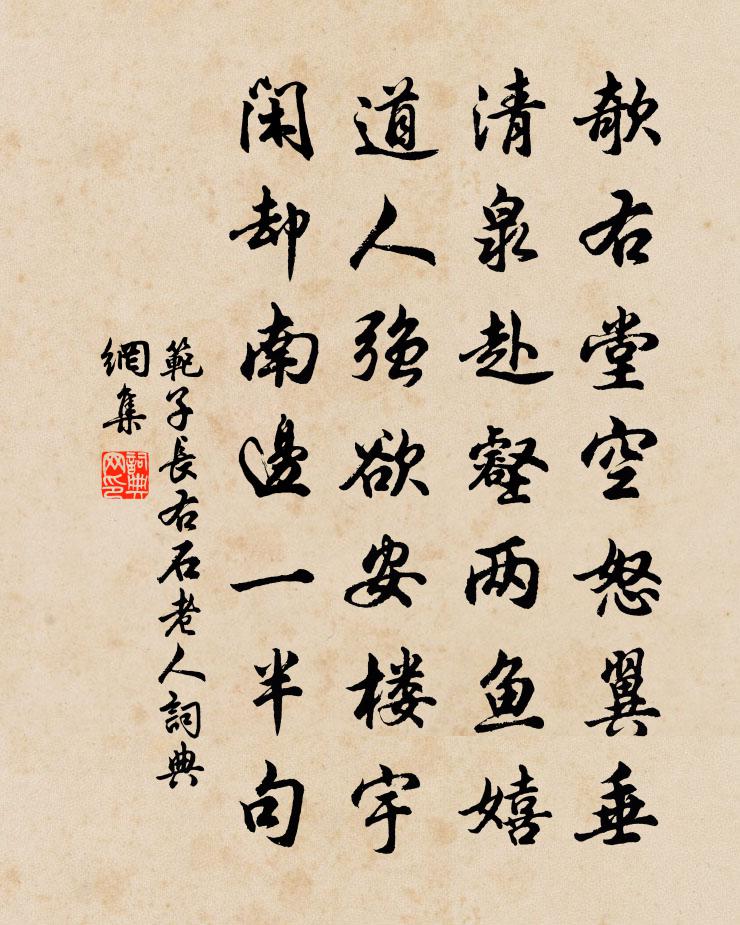 欹右堂空怒翼垂
清泉赴壑两鱼嬉
道人强欲安楼宇
閑却南邊一半句
範子長右石老人詞典
網集
詞典
网印